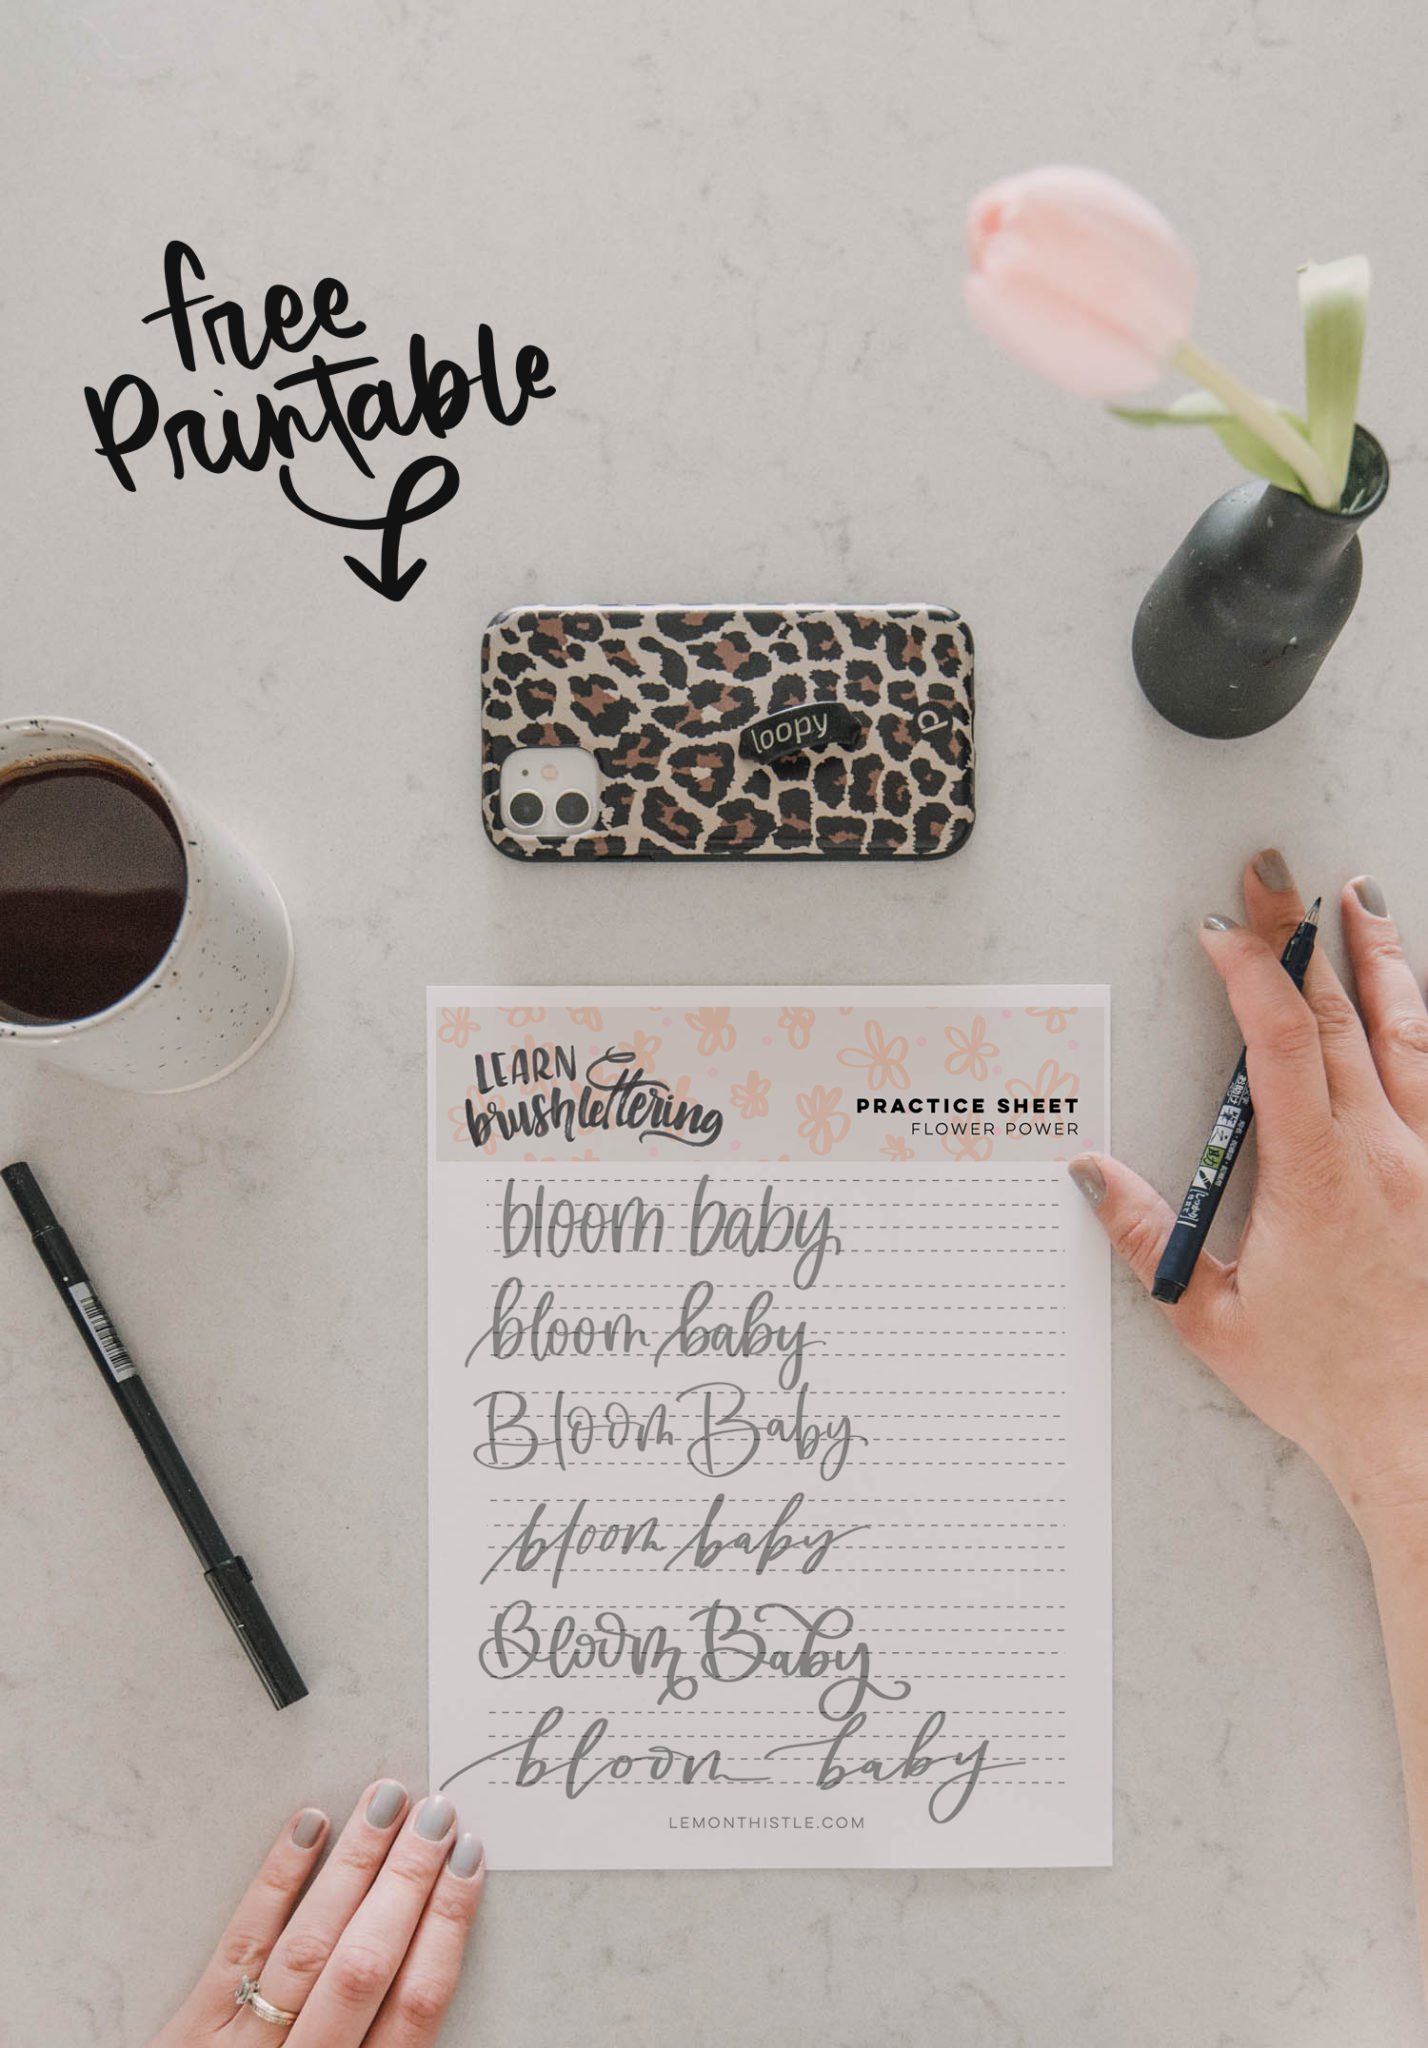 free
Printable
loopy
LEARN
brushlettering
PRACTICE SHEET
FLOWER POWER
bloom baby
bloom baby
Bloom Baby
bloom baby
Bloom Baby
bloom baby
LEMONTHISTLE.COM